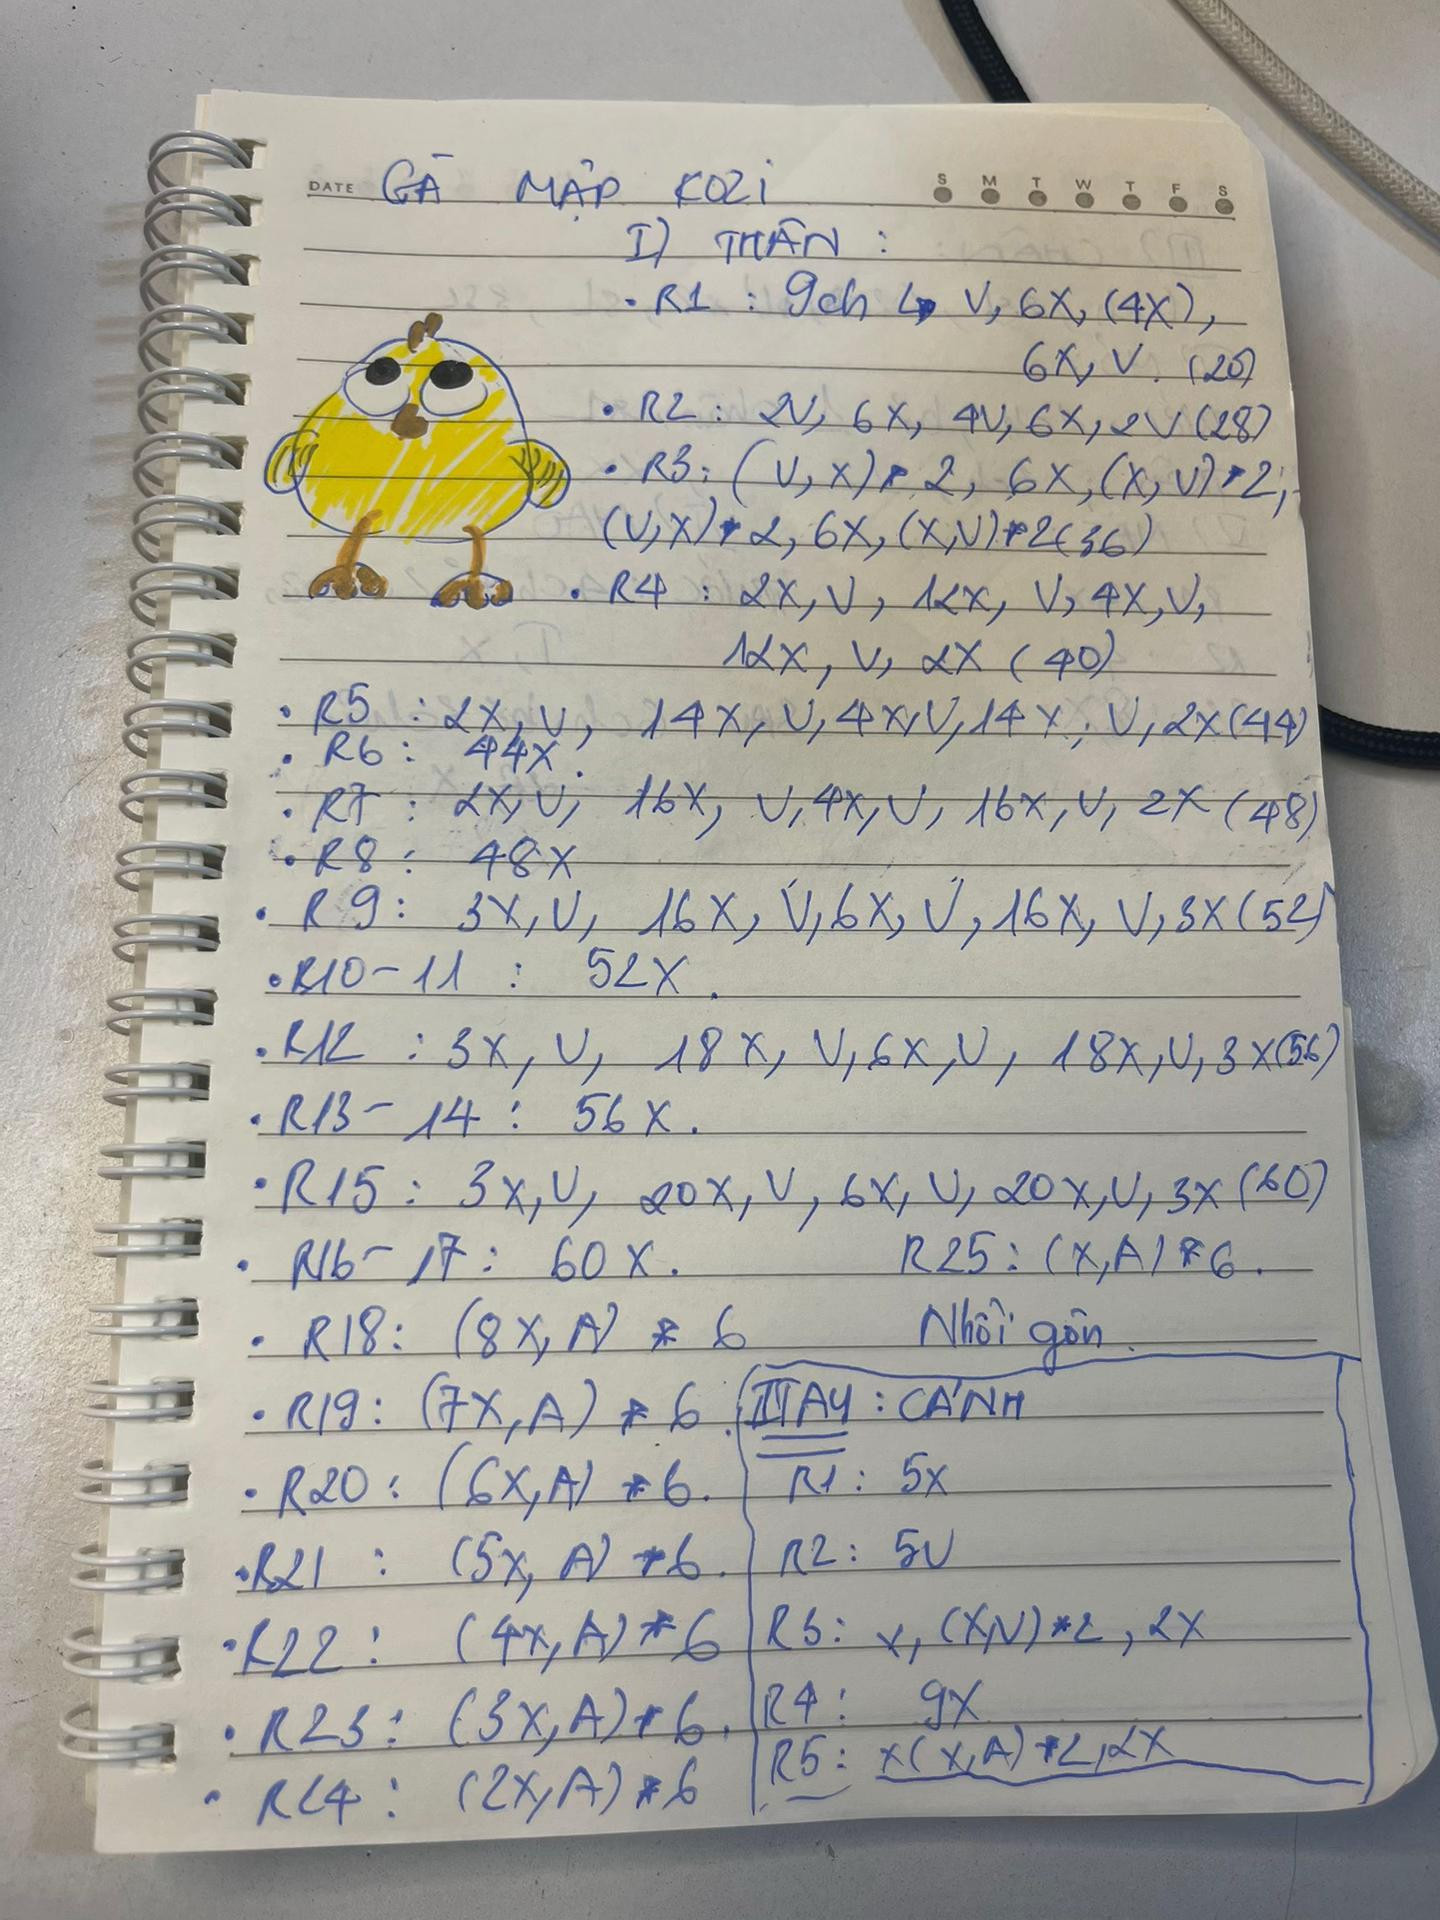 DATE GÀ MẬP KOZI S M T W T F S
I) THÂN :
• R1 : 9ch ↳ V, 6X, (4X),
6X, V. (20)
• R2 : 2V, 6X, 4V, 6X, 2V (28)
• R3 : (V, X) * 2, 6X, (X, V) * 2,
(V, X) * 2, 6X, (X, V) * 2 (36)
• R4 : 2X, V, 12X, V, 4X, V,
12X, V, 2X (40)
• R5 : 2X, V, 14X, V, 4X, V, 14X, V, 2X (44)
• R6 : 44X.
• R7 : 2X, V, 16X, V, 4X, V, 16X, V, 2X (48)
• R8 : 48X
• R9 : 3X, V, 16X, V, 6X, V, 16X, V, 3X (52)
• R10 - 11 : 52X.
• R12 : 3X, V, 18X, V, 6X, V, 18X, V, 3X (56)
• R13 - 14 : 56X.
• R15 : 3X, V, 20X, V, 6X, V, 20X, V, 3X (60)
• R16 - 17 : 60X.
• R18 : (8X, A) * 6
• R19 : (7X, A) * 6.
• R20 : (6X, A) * 6.
• R21 : (5X, A) * 6.
• R22 : (4X, A) * 6
• R23 : (3X, A) * 6.
• R24 : (2X, A) * 6
R25 : (X, A) * 6.
Nhồi gòn.
II TAY : CÁNH
R1 : 5X
R2 : 5V
R3 : X, (X, V) * 2, 2X
R4 : 9X
R5 : X (X, A) * 2, 2X